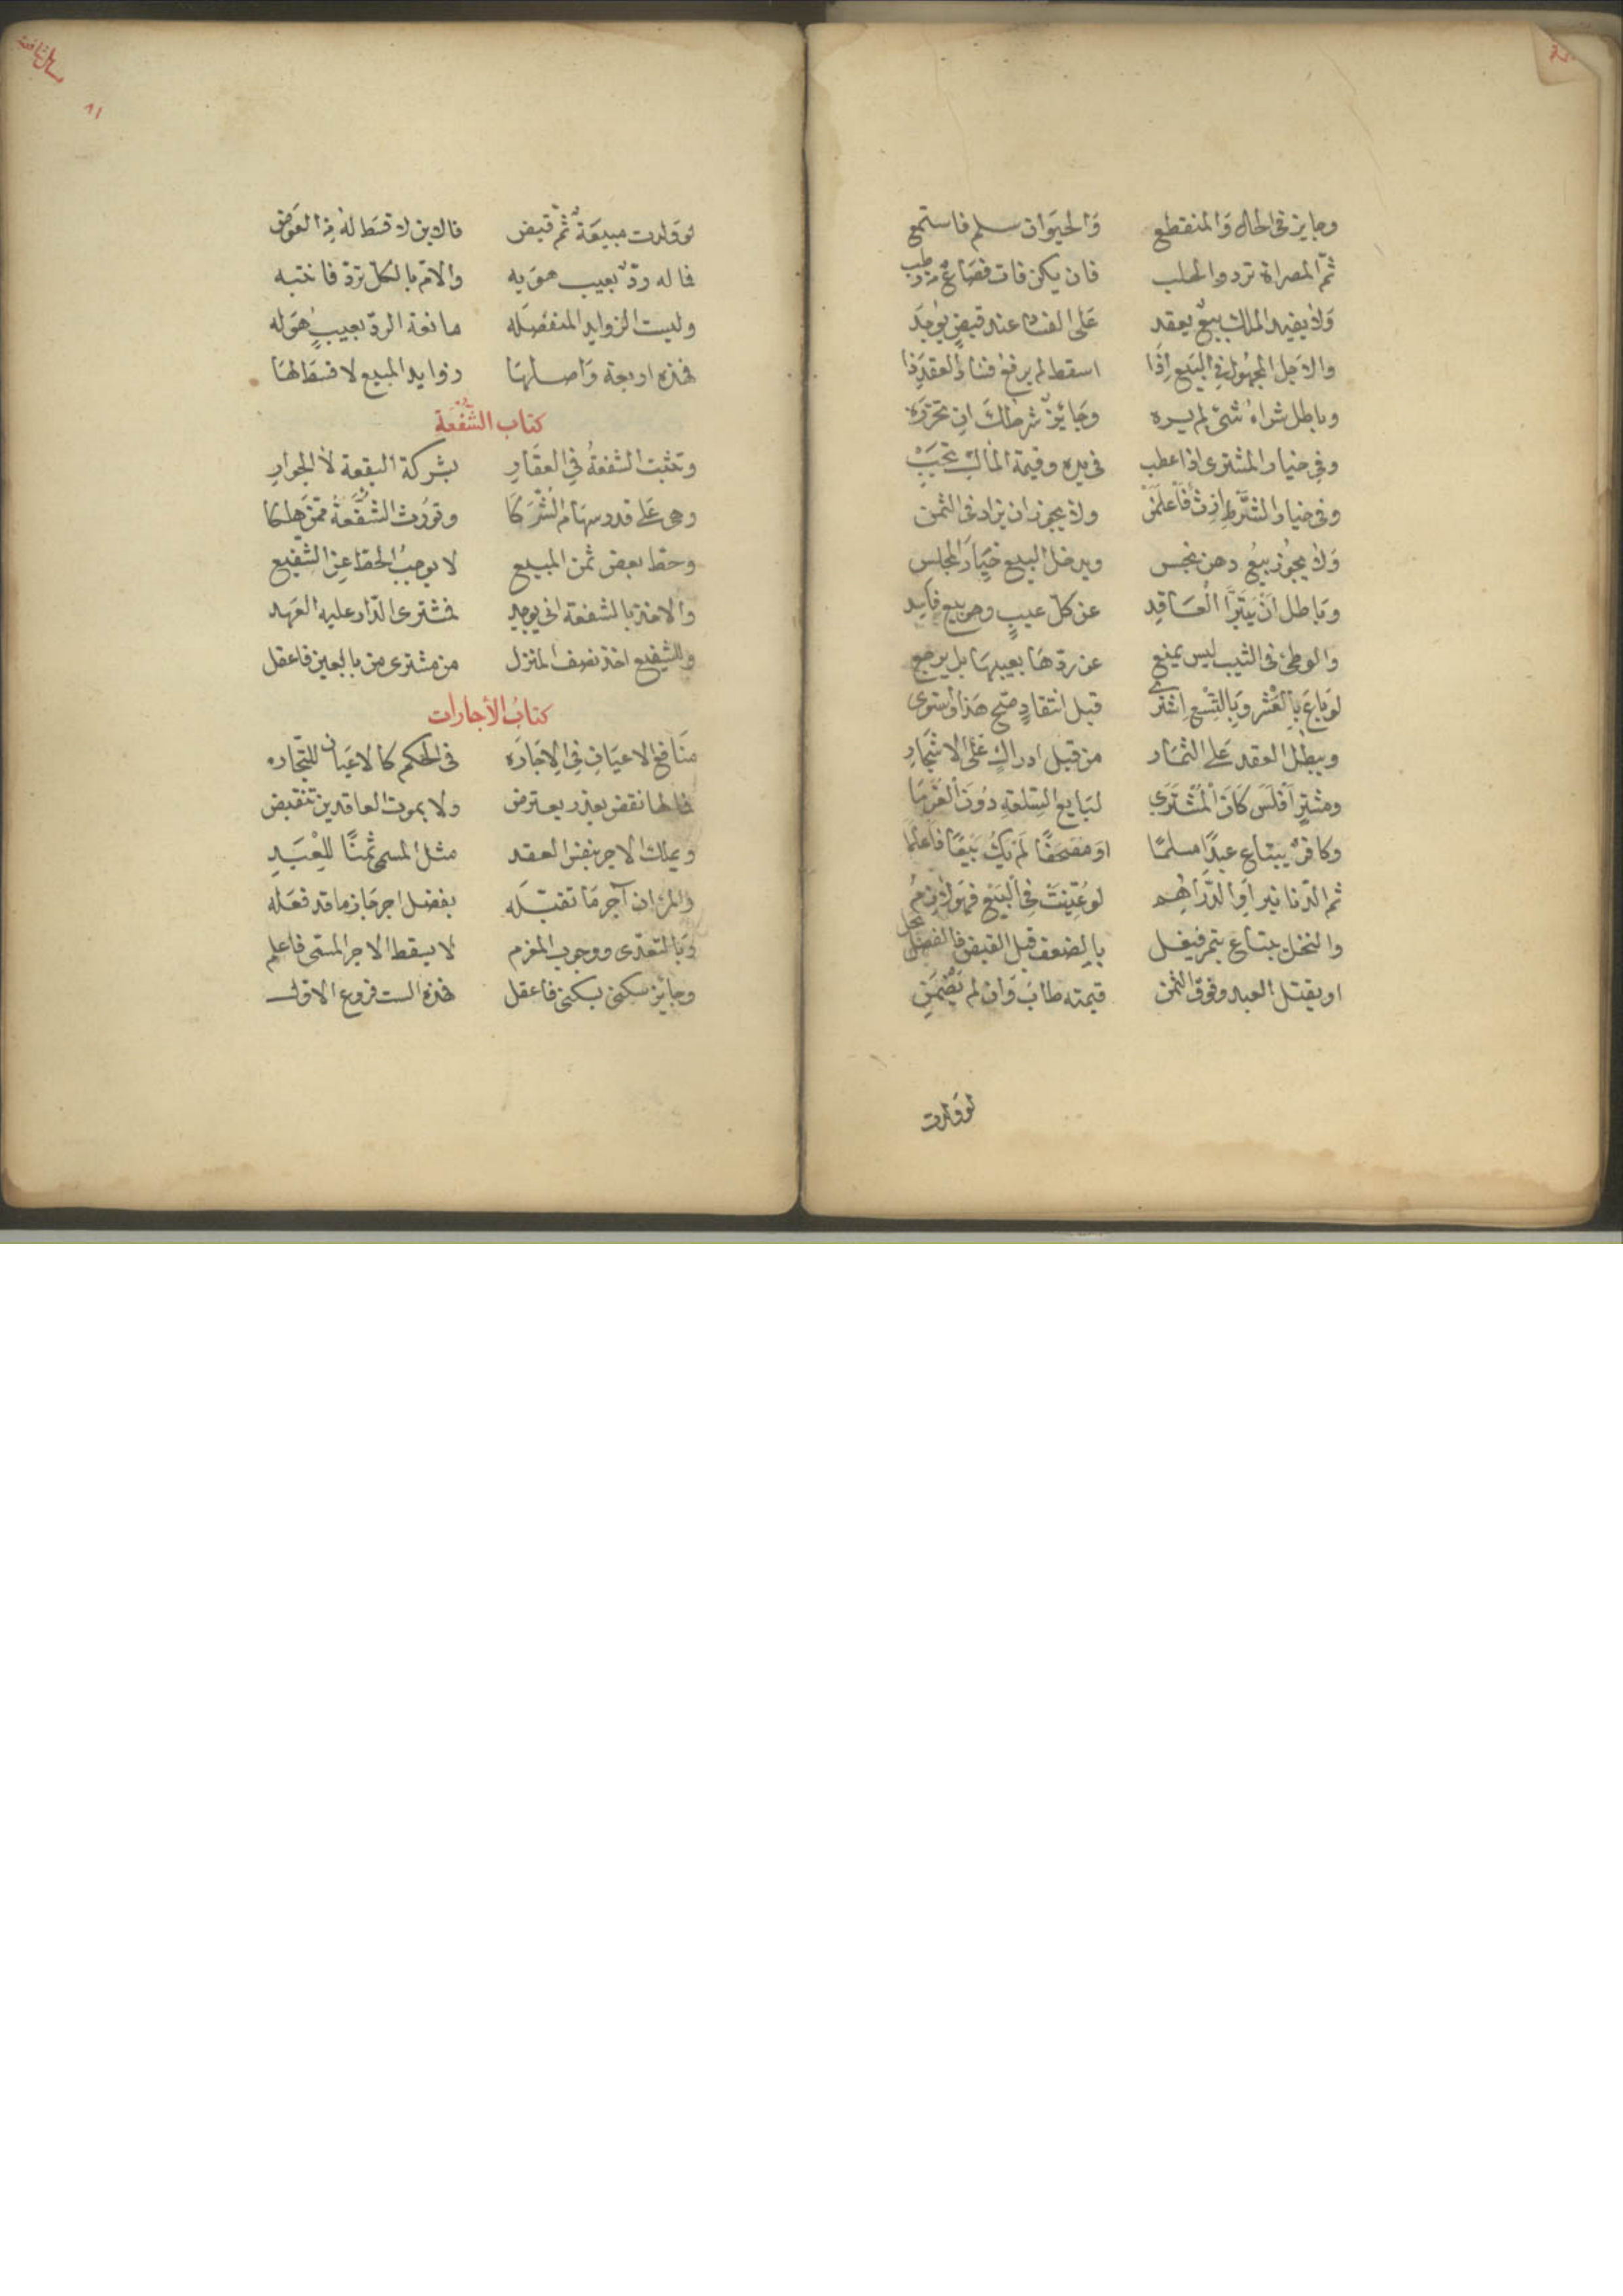 وجايز في الحال والمنقطع والحيوان سلم فاستمع
ثم المصراة ترد والحلب فان يكن فات فصاع من رطب
ولا يفيد الملك بيع يعقد على الفساد عند قبض يوجد
والاجل المجهول في البيع اذا اسقط لم يرفع فساد العقد ذا
وباطل شراء شئ لم يره وجائز شرطك ان تحرره
وفي خيار المشترى اذا عطب في يده وقيمة المالك تجب
وفي خيار الشرط ارث فاعلمن ولا يجوز ان يزاد في الثمن
ولا يجوز بيع دهن نجس ويدخل البيع خيار المجلس
وباطل ان يتبرا العاقد عن كل عيب وهو بيع فاسد
والوطئ في الثيب ليس يمنع عن ردها بعيبها بل يرجع
لو باع بالعشر وبالتسع اشترى قبل انتقاد صح هذا واستوى
ويبطل العقد على الثمار من قبل ادراك على الاشجار
ومشتر افلس كان المشترى لبايع السلعة دون الغرما
وكافر يبتاع عبدا مسلما او مصحفا لم يك بيعا فاعلما
ثم الدنانير او الدراهم لو عينت في البيع فهو لازم
والنخل يبتاع بتمر فيغل بالضعف قبل القبض فالفضل يحل
او يقتل العبد وفوق الثمن قيمته طاب وان لم يضمن
لو ولدت
مسائل شافعى
٨١
لو ولدت مبيعة ثم قبض فالابن لا قسط له من العوض
فما له رد بعيب هو به والام بالكل ترد فانتبه
وليست الزوايد المنفصله مانعة الرد بعيب هو له
فهذه اربعة واصلها زوايد المبيع لا قسط لها
كتاب الشفعة
وتثبت الشفعة في العقار بشركة البقعة لا الجوار
وهى على قدر سهام الشركا وتورث الشفعة ممن هلكا
وحط بعض ثمن المبيع لا يوجب الحط عن الشفيع
والاخذ بالشفعة انى يوجد فمشترى الدار عليه العهد
وللشفيع اخذ نصف المنزل من مشترى من بايعين فاعقل
كتاب الأجارات
منافع الاعيان في الاجاره في الحكم كالاعيان للتجاره
فما لها نقض بعذر يعترض ولا بموت العاقدين تنتقض
ويملك الاجر بنفس العقد مثل المسمى ثمنا للعبد
والمرء ان آجر ما تقبله بفضل اجر جاز ما قد فعله
وبالتعدى ووجوب المغرم لا يسقط الاجر المسمى فاعلم
وجائز سكنى بسكنى فاعقل فهذه الست فروع الاول